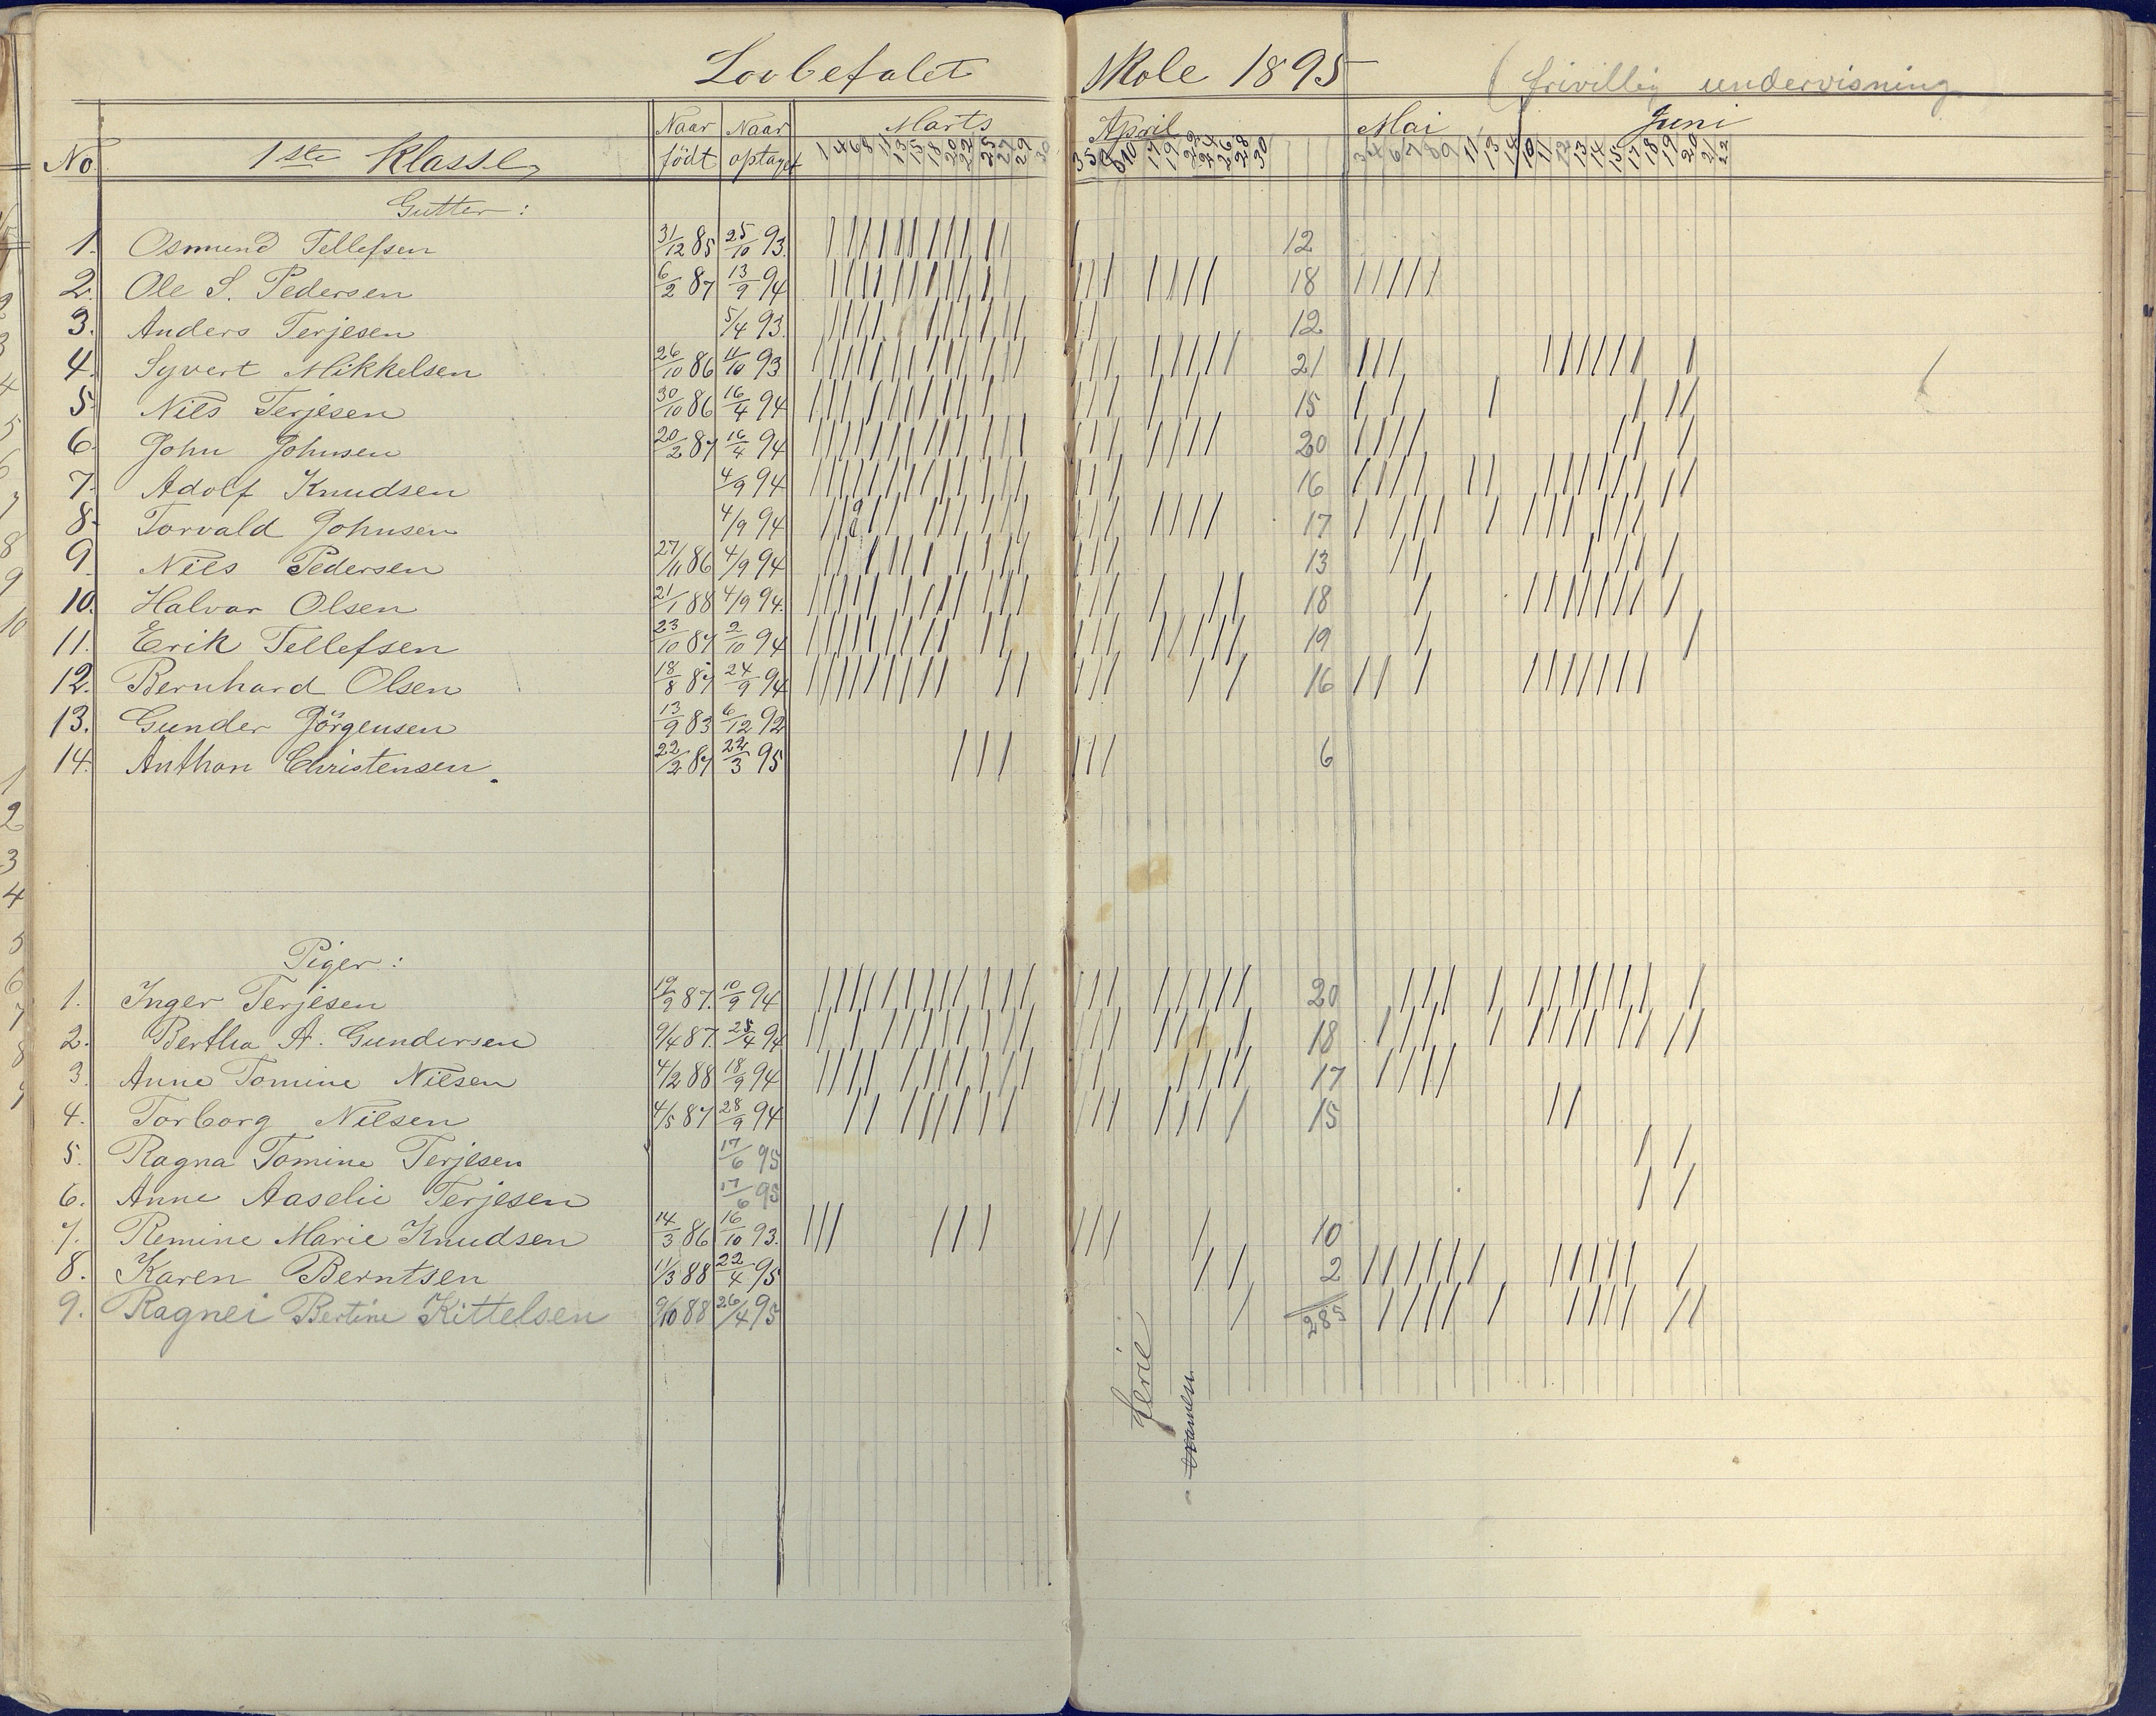 Lovbefalet Skole 1895 (frivillig undervisning
No. 1ste Klasse Naar født Naar optaget Marts April Mai Juni
1 4 6 8 11 13 15 18 20 22 25 27 29 30 3 5 8 10 17 19 22 24 26 28 30 3 4 6 7 8 9 11 13 14 10 11 12 13 14 15 17 18 19 20 21 22
Gutter:
1. Osmund Tellefsen 31/12 85 25/10 93. 12
2. Ole S. Pedersen 6/2 87 13/9 94 18
3. Anders Terjesen 5/4 93. 12
4. Syvert Mikkelsen 26/10 86 11/10 93 21
5. Nils Terjesen 30/10 86 16/4 94 15
6. John Johnsen 20/2 87 16/4 94 20
7. Adolf Knudsen 4/9 94 16
8. Torvald Johnsen 4/9 94 17
9. Nils Pedersen 27/11 86 4/9 94 13
10. Halvar Olsen 21/1 88 4/9 94. 18
11. Erik Tellefsen 23/10 87 2/10 94 19
12. Bernhard Olsen 18/8 87 24/9 94 16
13. Gunder Jörgensen 13/9 83 6/12 92
14. Anthon Christensen. 22/2 87 22/3 95 6
Piger:
1. Inger Terjesen 19/9 87. 10/9 94 20
2. Bertha A. Gundersen 9/4 87. 25/4 94 18
3. Anne Tomine Nilsen 4/2 88 18/9 94 17
4. Torborg Nilsen 4/5 87 28/9 94 15
5. Ragna Tomine Terjesen 17/6 95
6. Anne Aaselie Terjesen 17/6 95
7. Remine Marie Knudsen 14/3 86 16/10 93. 10
8. Karen Berntsen 11/3 88 22/4 95 2
9. Ragnei Bertine Kittelsen 9/10 88 26/4 95 285
ferie
examen